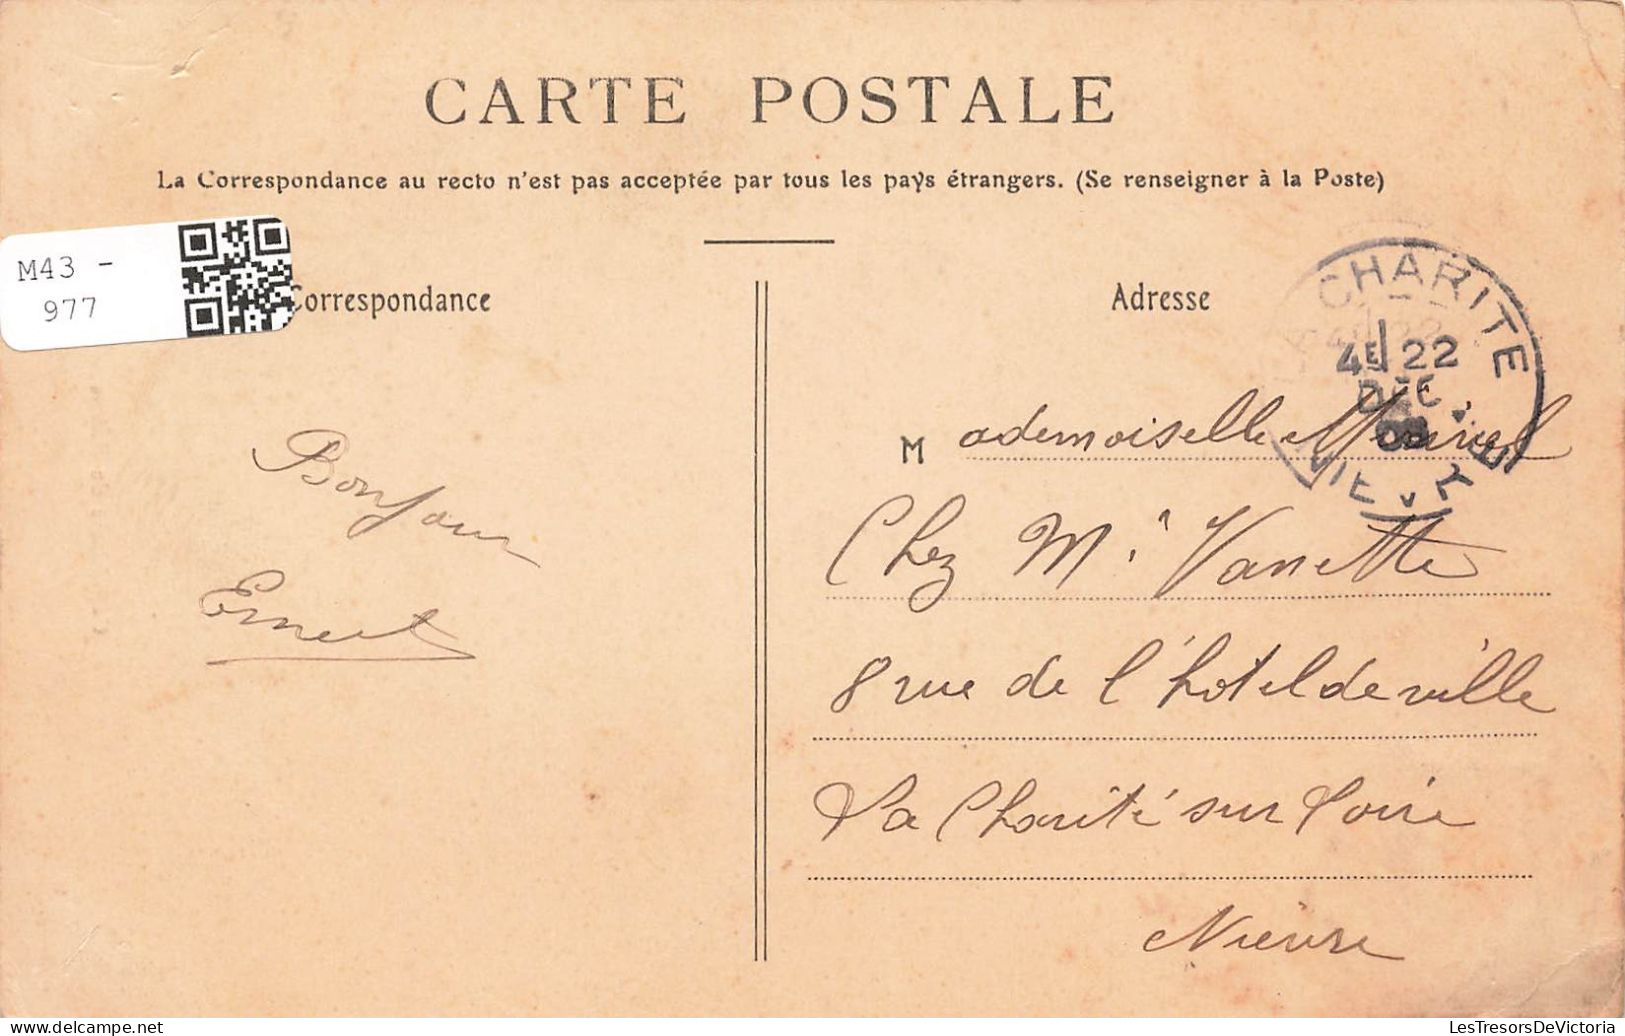 CARTE POSTALE
La Correspondance au recto n'est pas acceptée par tous les pays étrangers. (Se renseigner à la Poste)
M43 -
977
Correspondance
Adresse
CHARITE
4E 22
DEC
08
NIEVRE
Bonjour
Ernest
Mademoiselle
Chez Mr Vanette
8 rue de l'hotel de ville
La Charité sur Loire
Nièvre
delcampe.net
LesTresorsDeVictoria